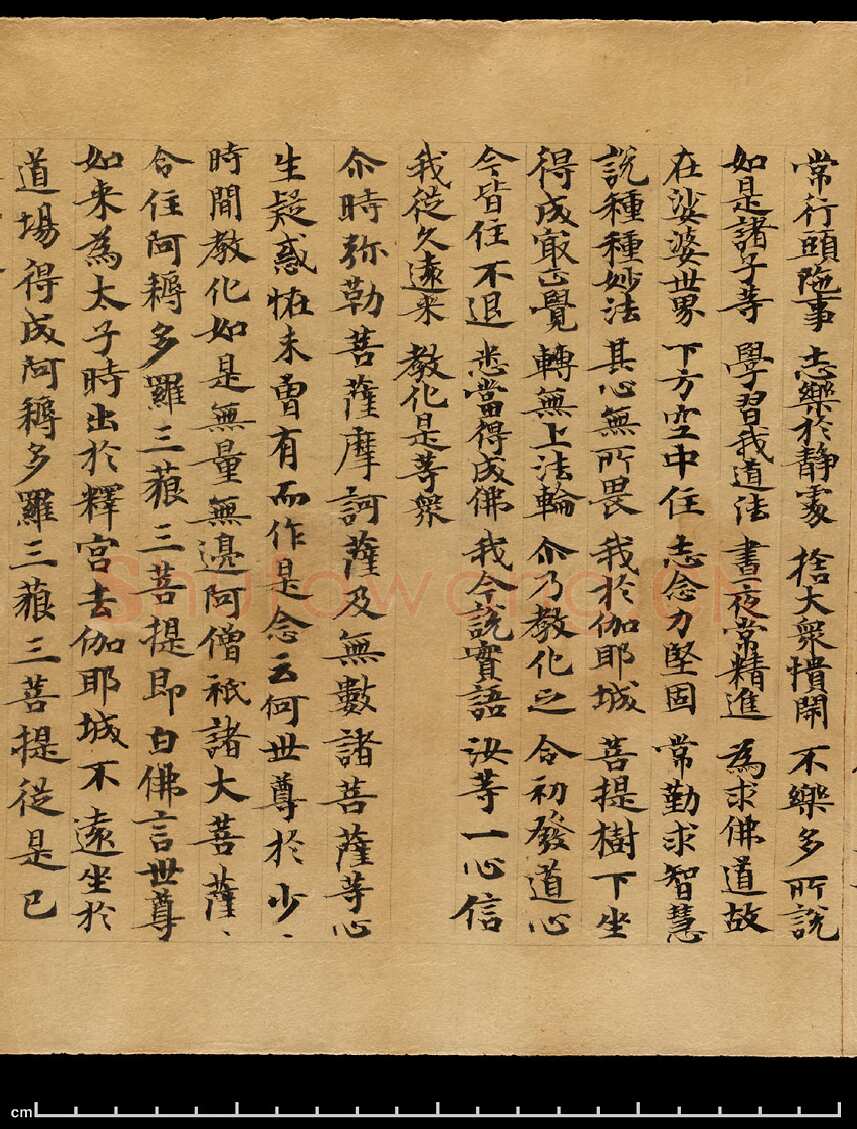 常行頭陁事 志樂於静處 捨大衆憒閙 不樂多所説
如是諸子等 學習我道法 晝夜常精進 為求佛道故
在娑婆世界 下方空中住 志念力堅固 常勤求智慧
説種種妙法 其心無所畏 我於伽耶城 菩提樹下坐
得成冣正覺 轉無上法輪 尒乃教化之 令初發道心
今皆住不退 悉當得成佛 我今説實語 汝等一心信
我從久遠来 教化是等衆
尒時弥勒菩薩摩訶薩及無數諸菩薩等心
生疑惑恠未曾有而作是念云何世尊於少
時間教化如是無量無邊阿僧祇諸大菩薩
令住阿耨多羅三藐三菩提即白佛言世尊
如来為太子時出於釋宮去伽耶城不遠坐於
道場得成阿耨多羅三藐三菩提從是已
Shufawang.CN
cm